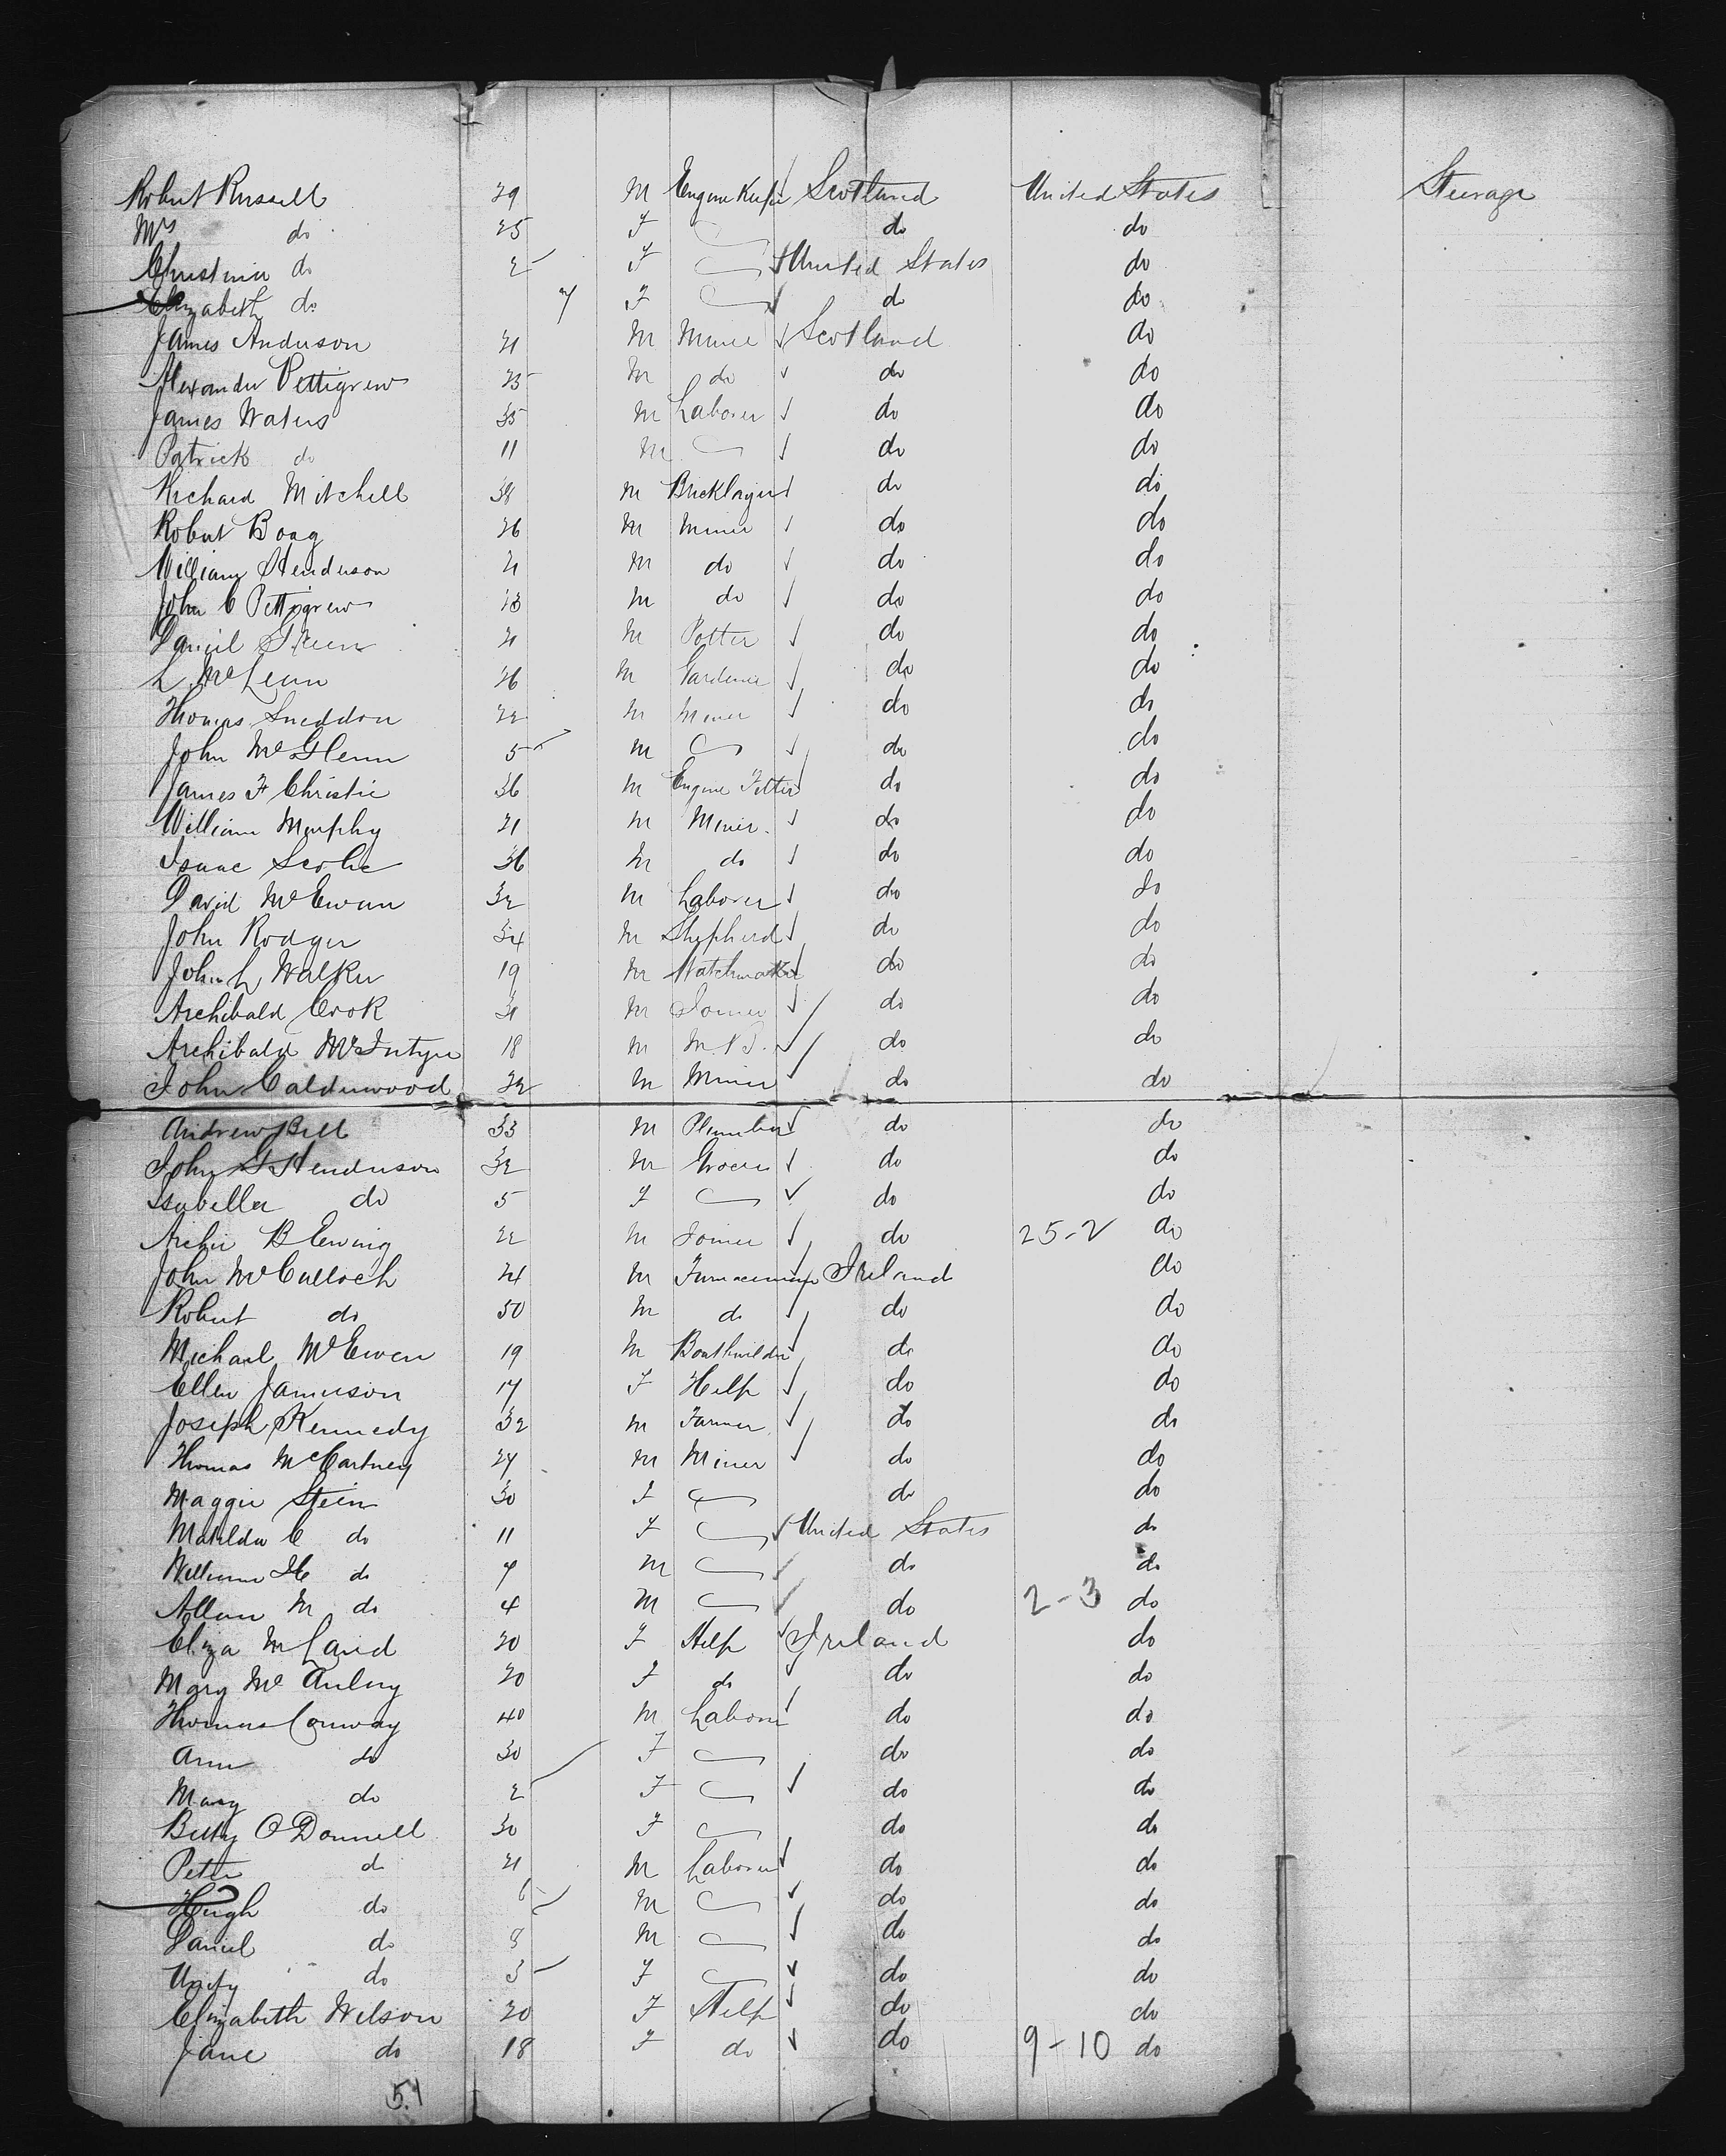 Robert Russell 29 M Engine Keeper Scotland United States Steerage
Mrs do 25 F do do
Christina do 2 F United States do
Elizabeth do 7 F do do
James Anderson 21 M Miner Scotland do
Alexander Pettigrew 25 M do do do
James Waters 35 M Laborer do do
Patrick do 11 M do do
Richard Mitchell 38 M Bricklayer do do
Robert Boag 26 M Miner do do
William Henderson 21 M do do do
John C Pettigrew M do do do
Daniel 21 M Potter do do
L McLean 26 M Gardener do do
Thomas Sneddon 22 M Miner do do
John McGlenn 5 M do do
James F Christie 36 M Engine Fitter do do
William Murphy 21 M Miner do do
Isaac 36 M do do do
David McEwan 32 M Laborer do do
John Rodger 34 M Shepherd do do
John L Walker 19 M Watchmaker do do
Archibald Crok 31 M Joiner do do
Archibald McIntyre 18 M do do
John Calderwood 22 M Miner do do
Andrew Bell 33 M Plumber do do
John G Henderson 32 M Grocer do do
Isabella do 5 F do do
Archie B Ewing 22 M Joiner do 25-2 do
John McCulloch 24 M Furnaceman Ireland do
Robert do 50 M do do do
Michael McEwen 19 M Boatbuilder do do
Ellen Jamieson 17 F Help do do
Joseph Kennedy 32 M Farmer do do
Thomas McCartney 24 M Miner do do
Maggie Stein 30 F do do
Matilda C do 11 F United States do
William H do 7 M do do
Allan M do 4 M do 2-3 do
Eliza 20 F Help Ireland do
Mary McAuley 20 F do do do
Thomas Conway 40 M Laborer do do
Ann do 30 F do do
Mary do 2 F do do
Betty O Donnell 30 F do do
Peter do 21 M Laborer do do
Hugh do M do do
Daniel do 8 M do do
Unity do 3 F do do
Elizabeth Wilson 20 F Help do do
Jane do 18 F do do 9-10 do
51